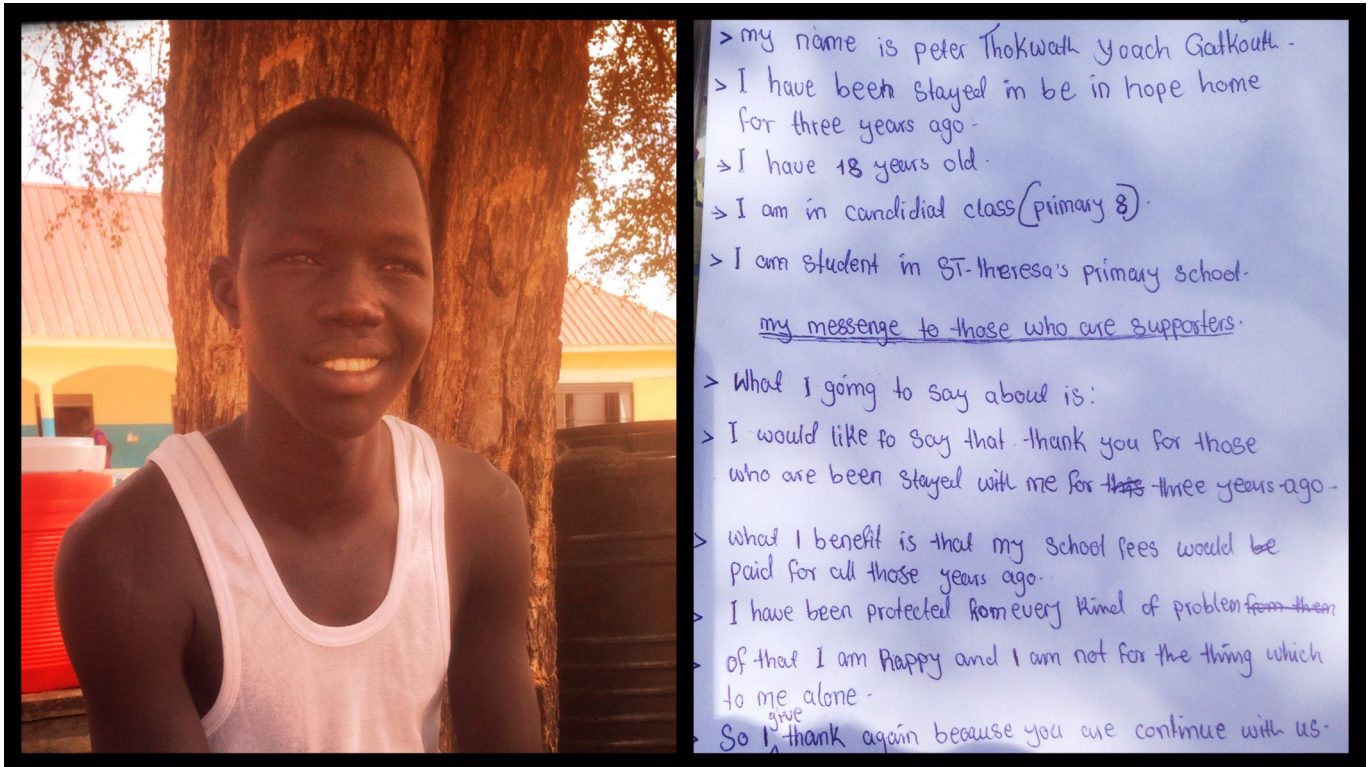 > my name is peter Thokwath Yoach Gatkouth -
> I have been stayed in be in hope home
for three years ago -
> I have 18 years old.
> I am in candidial class (primary 8).
> I am student in ST-theresa's primary school.
my messenge to those who are supporters.
> What I going to say about is:
> I would like to say that thank you for those
who are been stayed with me for this three years ago -
> what I benefit is that my school fees would be
paid for all those years ago.
> I have been protected from every kind of problem from them
> of that I am happy and I am not for the thing which
to me alone -
> So I give thank again because you are continue with us.